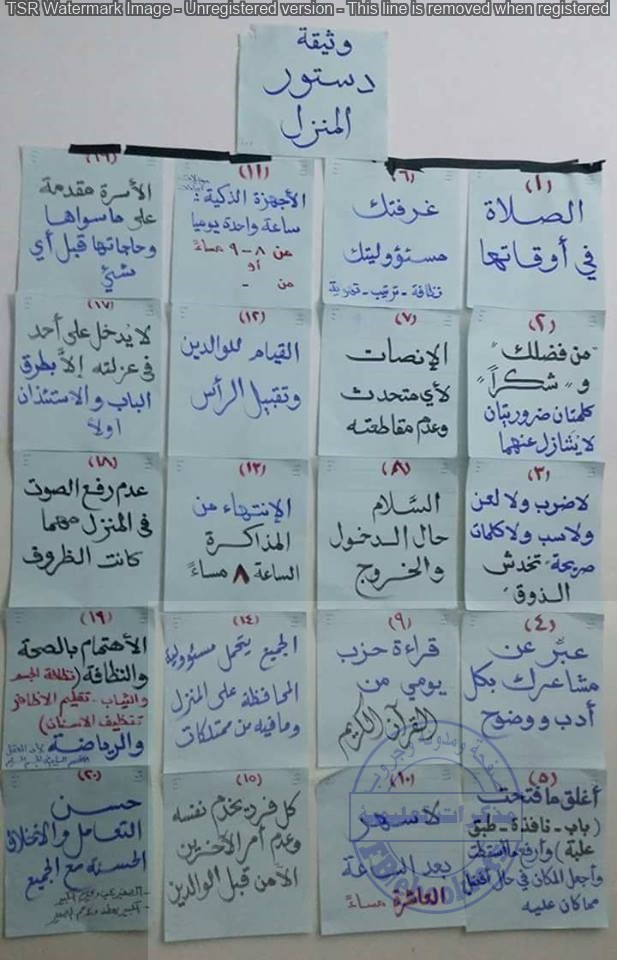 TSR Watermark Image - Unregistered version - This line is removed when registered
وثيقة
دستور
المنزل
(١)
الصلاة
في أوقاتها
(٢)
"من فضلك"
و "شكراً"
كلمتان ضروريتان
لا يتنازل عنهما
(٣)
لا ضرب ولا لعن
ولا سب ولا كلمات
صريحة تخدش
الذوق
(٤)
عبّر عن
مشاعرك بكل
أدب ووضوح
(٥)
أغلق ما فتحت
(باب - نافذة - طبق
علبة) وارفع ما أسقطت
وأجعل المكان في حال أفضل
مما كان عليه
(٦)
غرفتك
مسئووليتك
نظافة - ترتيب - تهوية
(٧)
الإنصات
لأي متحدث
وعدم مقاطعته
(٨)
السَّلام
حال الدخول
والخروج
(٩)
قراءة حزب
يومي من
القرآن الكريم
(١٠)
لا سهر
بعد الساعة
العاشرة مساءً
(١١)
الأجهزة الذكية:
ساعة واحدة يوميا
من ٨ - ٩ مساءً
أو
من -
(١٢)
القيام للوالدين
وتقبيل الرأس
(١٣)
الإنتهاء من
المذاكرة
الساعة ٨ مساءً
(١٤)
الجميع يتحمل مسئوولية
المحافظة على المنزل
وما فيه من ممتلكات
(١٥)
كل فرد يخدم نفسه
وعدم أمر الآخرين
الا من قبل الوالدين
(١٦)
الأسرة مقدمة
على ما سواها
وحاجاتها قبل أي
شيئ
(١٧)
لا يُدخل على أحد
في عزلته إلاَّ بطرق
الباب والاستئذان
اولاً
(١٨)
عدم رفع الصوت
في المنزل مهما
كانت الظروف
(١٩)
الأهتمام بالصحة
والنظافة (نظافة الجسم
والثياب - تقليم الاظافر
تنظيف الاسنان)
والرياضة
(٢٠)
حسن
التعامل والأخلاق
الحسنة مع الجميع